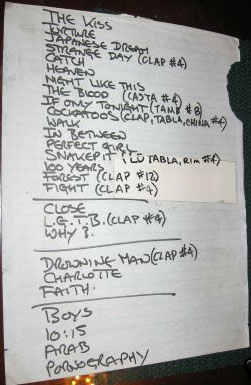 THE KISS
TORTURE
JAPANESE DREAM
STRANGE DAY (CLAP #4)
CATCH
HEAVEN
NIGHT LIKE THIS
THE BLOOD (CASTA #4)
IF ONLY TONIGHT (TAMB #8)
COCKATOOS (CLAP, TABLA, CHINA #4)
WALK
IN BETWEEN
PERFECT GIRL
SNAKEPIT : LO TABLA, RIM #4)
100 YEARS
FOREST (CLAP #12)
FIGHT (CLAP #4)
CLOSE
L.G.T.B. (CLAP #4)
WHY ?
DROWNING MAN (CLAP #4)
CHARLOTTE
FAITH.
BOYS
10:15
ARAB
PORNOGRAPHY